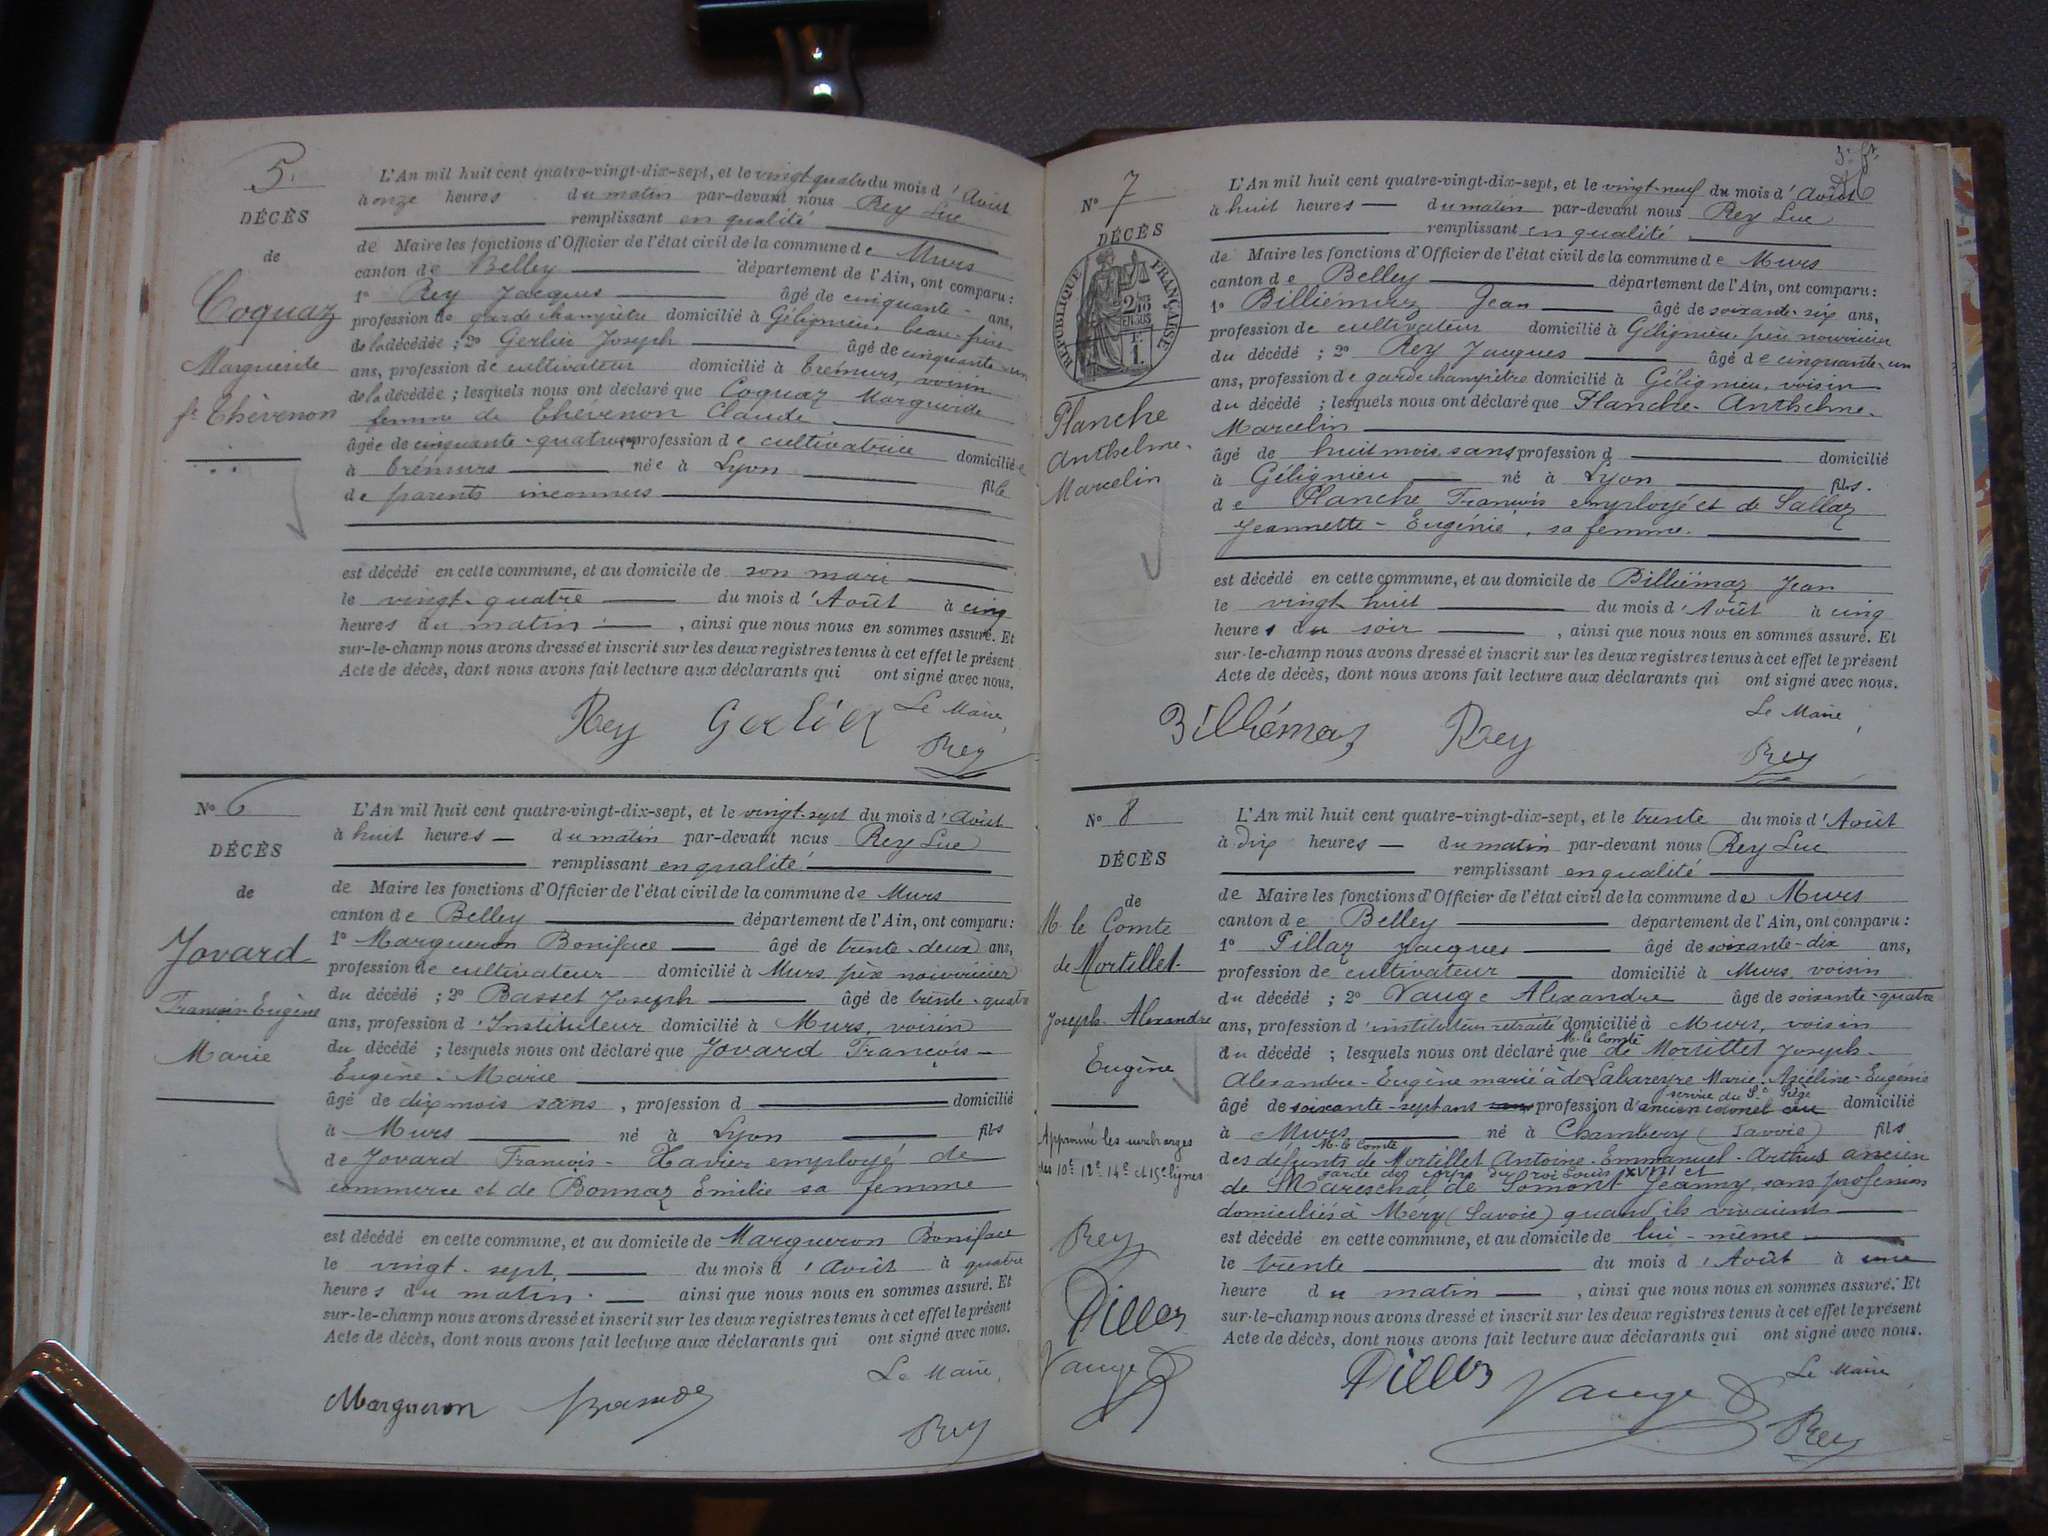 5.
DÉCÈS
de
Coquaz
Marguerite
fe Thévenon
L'An mil huit cent quatre-vingt-dix-sept, et le vingt-quatre du mois d'Août
à onze heures du matin par-devant nous Rey Luc
remplissant en qualité
de Maire les fonctions d'Officier de l'état civil de la commune de Murs
canton de Belley département de l'Ain, ont comparu :
1° Rey Jacques âgé de cinquante- ans,
profession de garde champêtre domicilié à Gélignieu, beau-frère
de la décédée ; 2° Gerlier Joseph âgé de cinquante-un
ans, profession de cultivateur domicilié à Trémurs, voisin
de la décédée ; lesquels nous ont déclaré que Coquaz Marguerite
femme de Thévenon Claude
âgée de cinquante-quatre ans profession de cultivatrice domiciliée
à Trémurs née à Lyon fille
de parents inconnus
est décédé en cette commune, et au domicile de son mari
le vingt-quatre du mois d'Août à cinq
heures du matin , ainsi que nous nous en sommes assuré. Et
sur-le-champ nous avons dressé et inscrit sur les deux registres tenus à cet effet le présent
Acte de décès, dont nous avons fait lecture aux déclarants qui ont signé avec nous.
Rey Gerlier Le Maire,
Rey
N° 6
DÉCÈS
de
Jovard
François-Eugène
Marie
L'An mil huit cent quatre-vingt-dix-sept, et le vingt-sept du mois d'Août
à huit heures du matin par-devant nous Rey Luc
remplissant en qualité
de Maire les fonctions d'Officier de l'état civil de la commune de Murs
canton de Belley département de l'Ain, ont comparu :
1° Margueron Boniface âgé de trente-deux ans,
profession de cultivateur domicilié à Murs, père nourricier
du décédé ; 2° Basset Joseph âgé de trente-quatre
ans, profession d'Instituteur domicilié à Murs, voisin
du décédé ; lesquels nous ont déclaré que Jovard François-
Eugène-Marie
âgé de dix mois sans , profession d domicilié
à Murs né à Lyon fils
de Jovard François-Xavier employé de
commerce et de Bonnaz Emilie sa femme
est décédé en cette commune, et au domicile de Margueron Boniface
le vingt-sept du mois d'Août à quatre
heures du matin. ainsi que nous nous en sommes assuré. Et
sur-le-champ nous avons dressé et inscrit sur les deux registres tenus à cet effet le présent
Acte de décès, dont nous avons fait lecture aux déclarants qui ont signé avec nous.
Le Maire,
Margueron
Rey
N° 7
DÉCÈS
RÉPUBLIQUE FRANÇAISE
Planche
Anthelme-
Marcelin
L'An mil huit cent quatre-vingt-dix-sept, et le vingt-neuf du mois d'Août
à huit heures du matin par-devant nous Rey Luc
remplissant en qualité
de Maire les fonctions d'Officier de l'état civil de la commune de Murs
canton de Belley département de l'Ain, ont comparu :
1° Billiémaz Jean âgé de soixante-six ans,
profession de cultivateur domicilié à Gélignieu, père nourricier
du décédé ; 2° Rey Jacques âgé de cinquante-un
ans, profession de garde champêtre domicilié à Gélignieu, voisin
du décédé ; lesquels nous ont déclaré que Planche-Anthelme-
Marcelin
âgé de huit mois, sans profession d domicilié
à Gélignieu né à Lyon fils.
de Planche François employé et de Sallaz
Jeannette-Eugénie, sa femme.
est décédé en cette commune, et au domicile de Billiémaz Jean
le vingt-huit du mois d'Août à cinq
heures du soir , ainsi que nous nous en sommes assuré. Et
sur-le-champ nous avons dressé et inscrit sur les deux registres tenus à cet effet le présent
Acte de décès, dont nous avons fait lecture aux déclarants qui ont signé avec nous.
Le Maire,
Billiémaz Rey
Rey
N° 8
DÉCÈS
de
M. le Comte
de Mortillet
Joseph-Alexandre
Eugène
Approuvé les surcharges
des 10e 12e 14e et 15e lignes
Rey
Pillaz
Vauge
L'An mil huit cent quatre-vingt-dix-sept, et le trente du mois d'Août
à dix heures du matin par-devant nous Rey Luc
remplissant en qualité
de Maire les fonctions d'Officier de l'état civil de la commune de Murs
canton de Belley département de l'Ain, ont comparu :
1° Pillaz Jacques âgé de soixante-dix ans,
profession de cultivateur domicilié à Murs, voisin
du décédé ; 2° Vauge Alexandre âgé de soixante-quatre
ans, profession d'instituteur retraité domicilié à Murs, voisin
M. le Comte
du décédé ; lesquels nous ont déclaré que de Mortillet Joseph-
Alexandre-Eugène marié à de Labareyre Marie-Azéline-Eugénie
service du St Siège
âgé de soixante-sept ans profession d'ancien colonel au domicilié
à Murs né à Chambéry (Savoie) fils
M. le Comte
des défunts de Mortillet Antoine-Emmanuel-Arthus ancien
garde des corps du roi Louis XVIII et
de Mareschal de Somont Jeanny, sans profession
domiciliés à Mery (Savoie) quand ils vivaient
est décédé en cette commune, et au domicile de lui-même
le trente du mois d'Août à une
heure du matin , ainsi que nous nous en sommes assuré. Et
sur-le-champ nous avons dressé et inscrit sur les deux registres tenus à cet effet le présent
Acte de décès, dont nous avons fait lecture aux déclarants qui ont signé avec nous.
Pillaz Vauge Le Maire
Rey